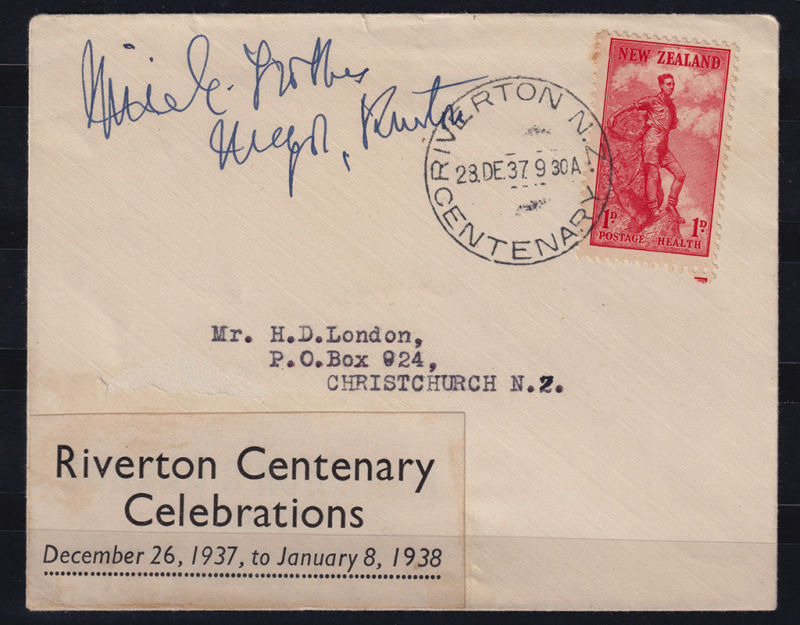 Mayor, Riverton
RIVERTON N.Z.
28.DE.37 9 30A
CENTENARY
NEW ZEALAND
1D 1D
POSTAGE HEALTH
Mr. H.D.London,
P.O.Box 924,
CHRISTCHURCH N.Z.
Riverton Centenary
Celebrations
December 26, 1937, to January 8, 1938